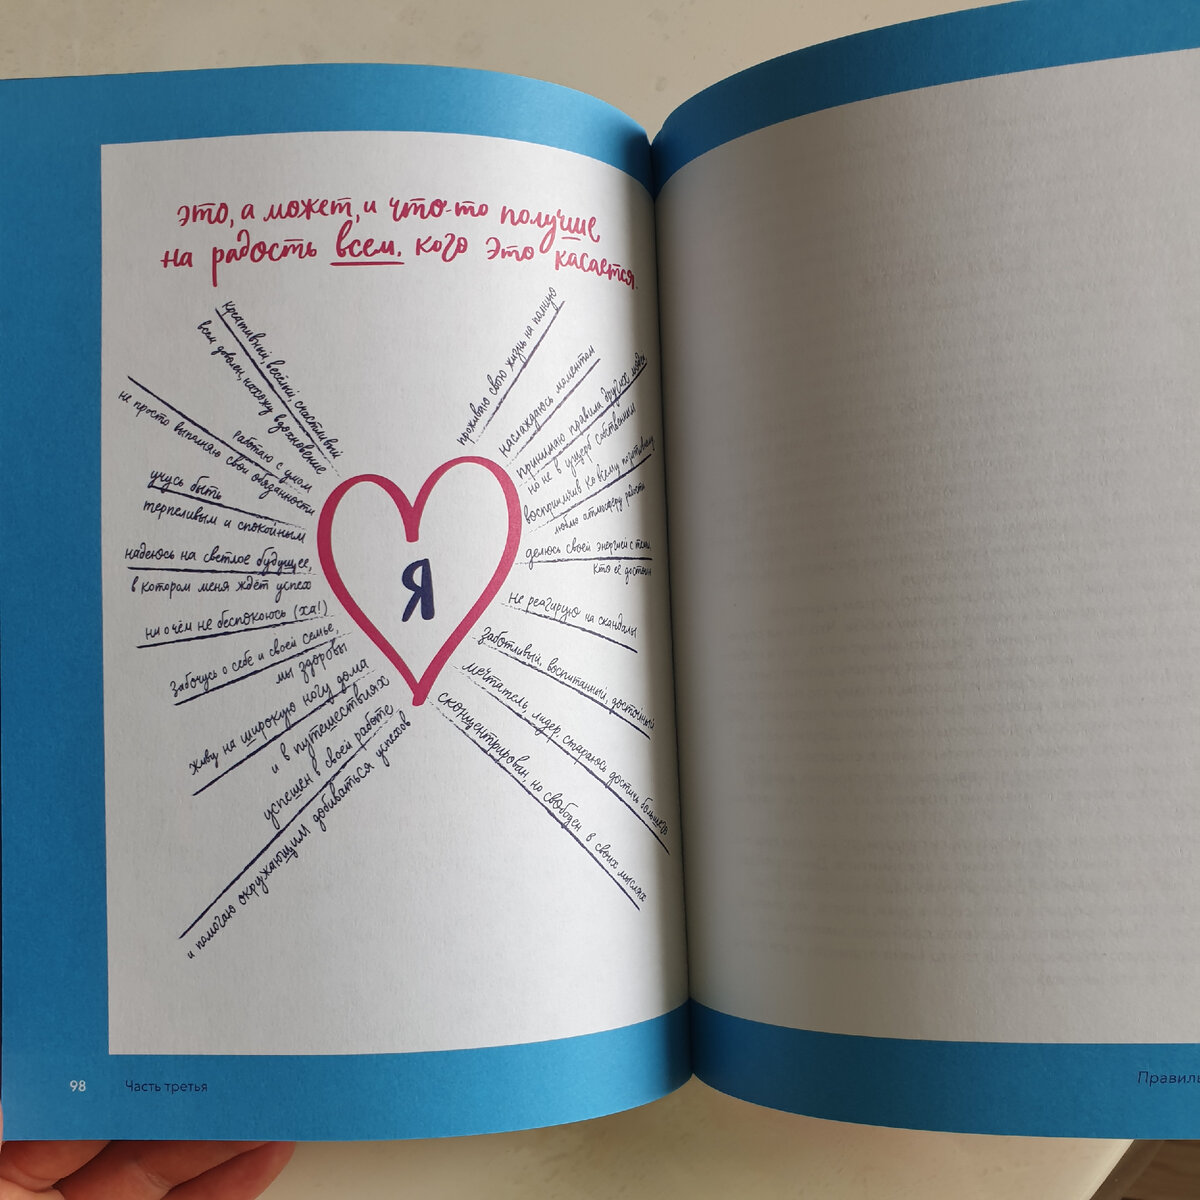 это, а может, и что-то получше
на радость всем, кого это касается.
креативный, весёлый, счастливый
всем доволен, нахожу вдохновение
работаю с умом
не просто выполняю свои обязанности
учусь быть
терпеливым и спокойным
надеюсь на светлое будущее,
в котором меня ждёт успех
ни о чём не беспокоюсь (ха!)
забочусь о себе и своей семье,
мы здоровы
живу на широкую ногу дома
и в путешествиях
успешен в своей работе
и помогаю окружающим добиваться успехов
Я
проживаю свою жизнь на полную
наслаждаюсь моментом
принимаю правила других людей
но не в ущерб собственным
восприимчив ко всему позитивному
люблю атмосферу радости
делюсь своей энергией с теми,
кто её достоин
не реагирую на скандалы
заботливый, воспитанный, достойный
мечтатель, лидер, стараюсь достичь большего
сконцентрирован, но свободен в своих мыслях
98
Часть третья